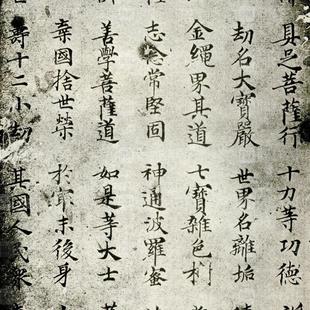 具足菩薩行 十力等功德
劫名大寶嚴 世界名離垢
金繩界其道 七寶雜色樹
志念常堅固 神通波羅蜜
善學菩薩道 如是等大士
棄國捨世榮 於㝡末後身
壽十二小劫 其國人民眾